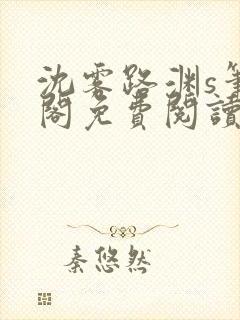 沈雾路渊s笔
阁免费阅读
秦悠然